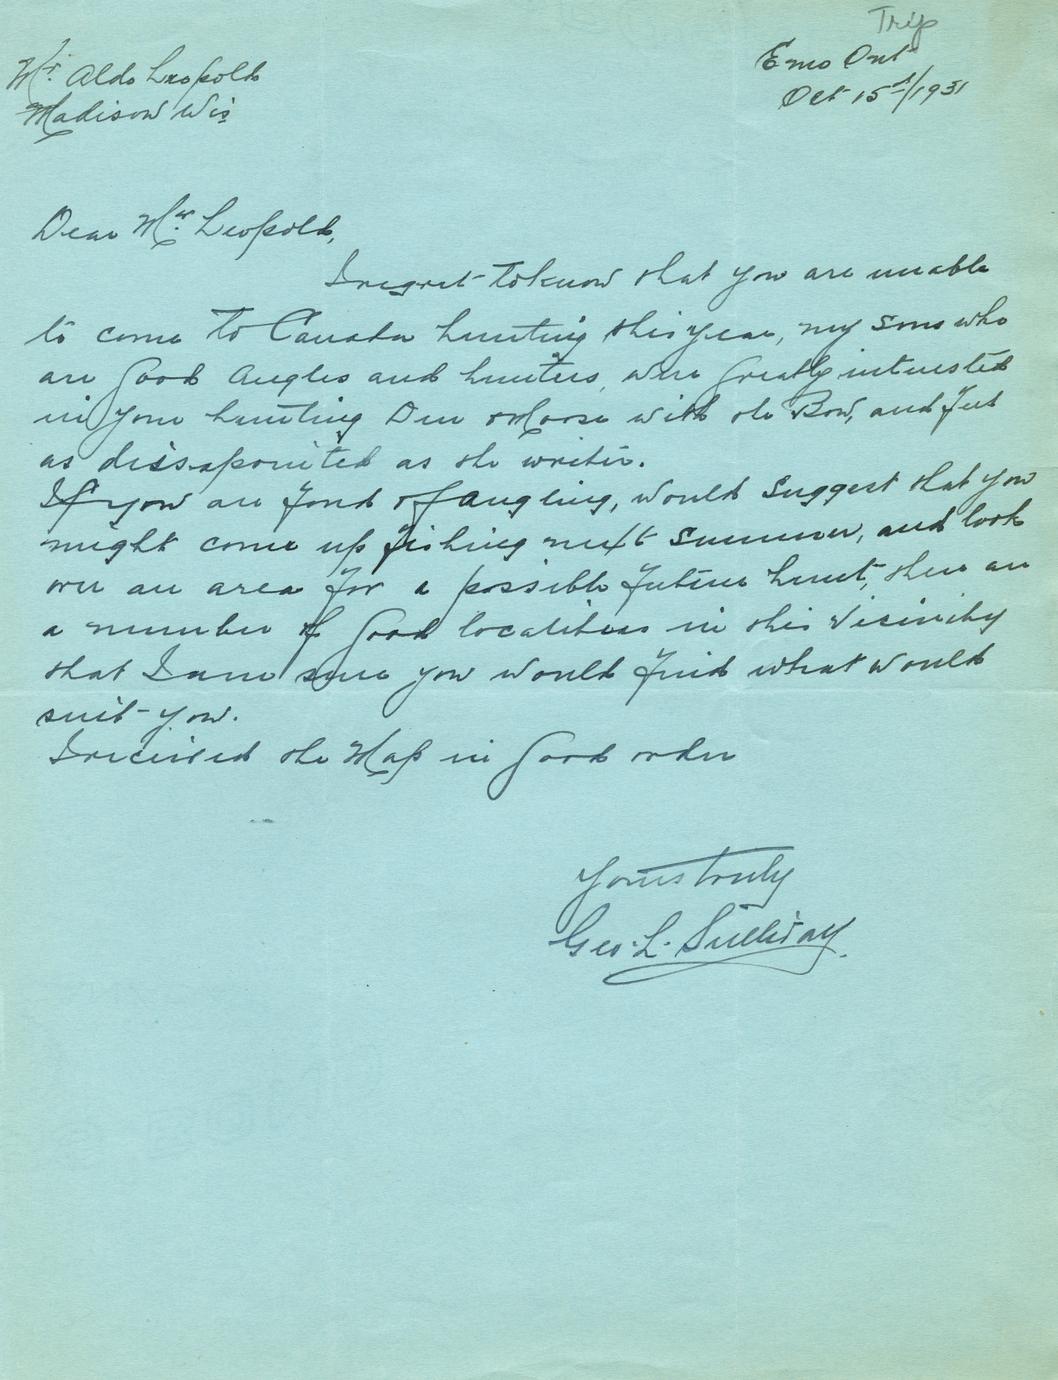 Trip
Emo Ont
Oct 15st/1931
Mr. Aldo Leopold
Madison Wis
Dear Mr. Leopold,
I regret to know that you are unable
to come to Canada hunting this year, my sons who
are good Angles and hunters, were greatly interested
in your hunting Deer or Moose with the Bow, and felt
as dissapointed as the writer.
If you are fond of angling, would suggest that you
might come up fishing next summer, and look
over an area for a possible future hunt, there are
a number of good localities in this vicinity
that I am sure you would find what would
suit you.
I received the Map in good order
Yours truly
Geo. L.